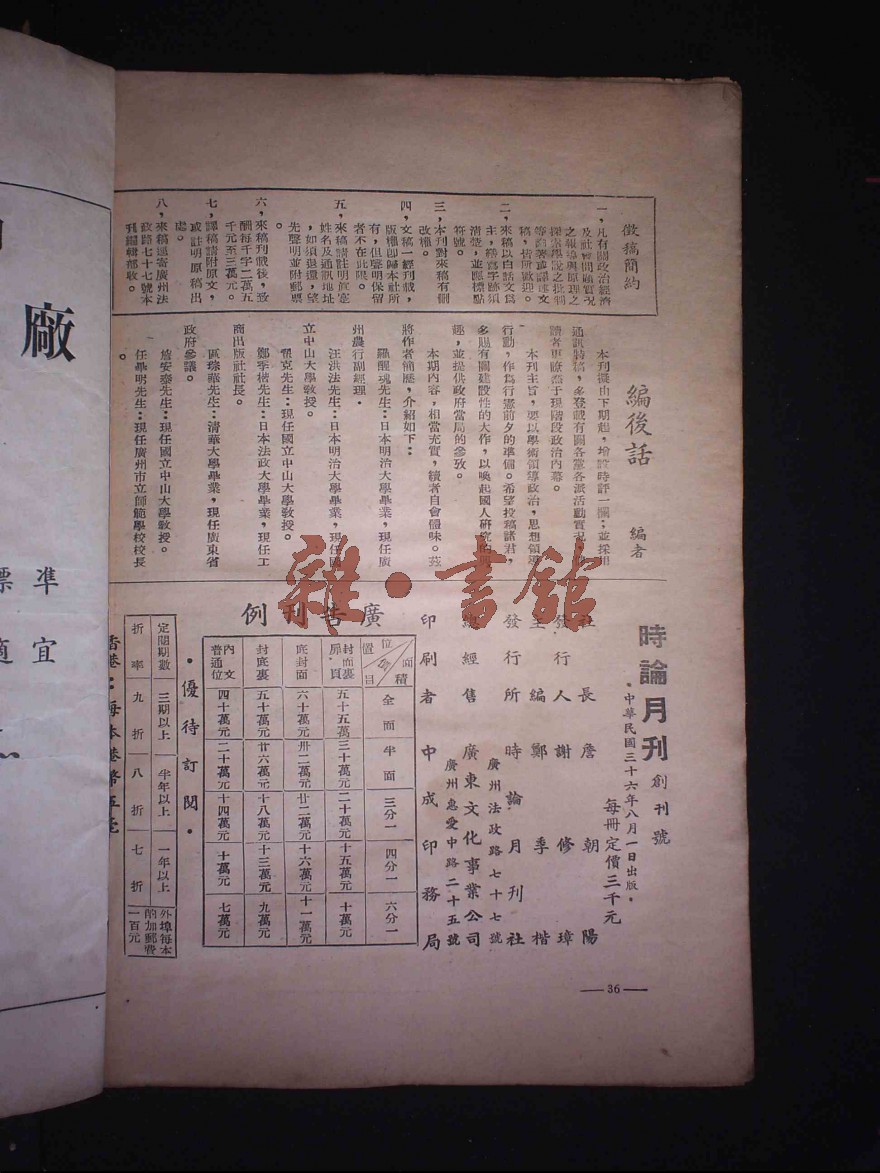 徵稿簡約
一，凡有關政治經濟
及社會問題實況
之報導與原理之
探索學說之批判
等創著或譯述文
稿，皆所歡迎。
二，來稿以白話文為
主，繕寫字跡須
清楚，並應標點
符號。
三，本刊對來稿有刪
改權。
四，文稿一經刊載，
版權即歸本社所
有，但聲明保留
者不在此限。
五，來稿請註明眞實
姓名及通訊地址
，如須退還，望
先聲明並附郵票
六，來稿刊載後，致
酬每千字二萬五
千元至三萬元。
七，譯稿請附原文，
或註明原稿出
處。
八，來稿逕寄廣州法
政路七十七號本
刊編輯部收。
編後話 編者
本刊擬由下期起，增設時評一欄；並採用
通訊特稿，多登載有關各黨各派活動實況，
讀者更瞭然于現階段政治內幕。
本刊主旨，要以學術領導政治，思想領導
行動，作為行憲前夕的準備。希望投稿諸君，
多賜有關建設性的大作，以喚起國人研究的興
趣，並提供政府當局的參攷。
本期內容，相當充實，讀者自會體味。茲
將作者簡歷，介紹如下：
羅醒魂先生：日本明治大學畢業，現任廣
州農行副經理。
汪洪法先生：日本明治大學畢業，現任國
立中山大學教授。
翟克先生：現任國立中山大學教授。
鄭季楷先生：日本法政大學畢業，現任工
商出版社社長。
區琮華先生：清華大學畢業，現任廣東省
政府參議。
詹安泰先生：現任國立中山大學教授。
任畢明先生：現任廣州市立師範學校校長
。
時論月刊 創刊號
中華民國三十六年八月一日出版。
每冊定價三千元
社長 詹朝陽
發行人 謝修璋
主編 鄭季楷
發行所 時論月刊社
廣州法政路七十七號
總經售 廣東文化事業公司
廣州惠愛中路二十五號
印刷者 中成印務局
廣告刊例
位置 面積 目 全面 半面 三分一 四分一 六分一
封面裏扉頁 五十五萬 三十萬元 二十萬元 十五萬元 十萬元
底封面 六十萬元 卅二萬元 廿二萬元 十六萬元 十一萬元
封底裏 五十萬元 廿六萬元 十八萬元 十三萬元 九萬元
內文普通位 四十萬元 二十萬元 十四萬元 十萬元 七萬元
・優待訂閱・
定閱期數 三期以上 半年以上 一年以上 外埠每本酌加郵費一百元
折率 九折 八折 七折
香港：每本港幣五毫
—36—
廠
準
標
宜
適
雜・書館